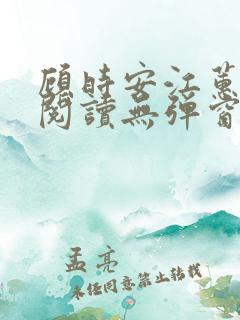 顾时安江蕙
阅读无弹窗
孟亮
未经同意禁止转载